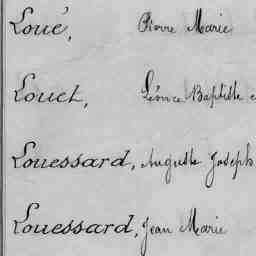 Loué, Pierre Marie
Louet, Léonce Baptiste
Louessard, Auguste Joseph
Louessard, Jean Marie